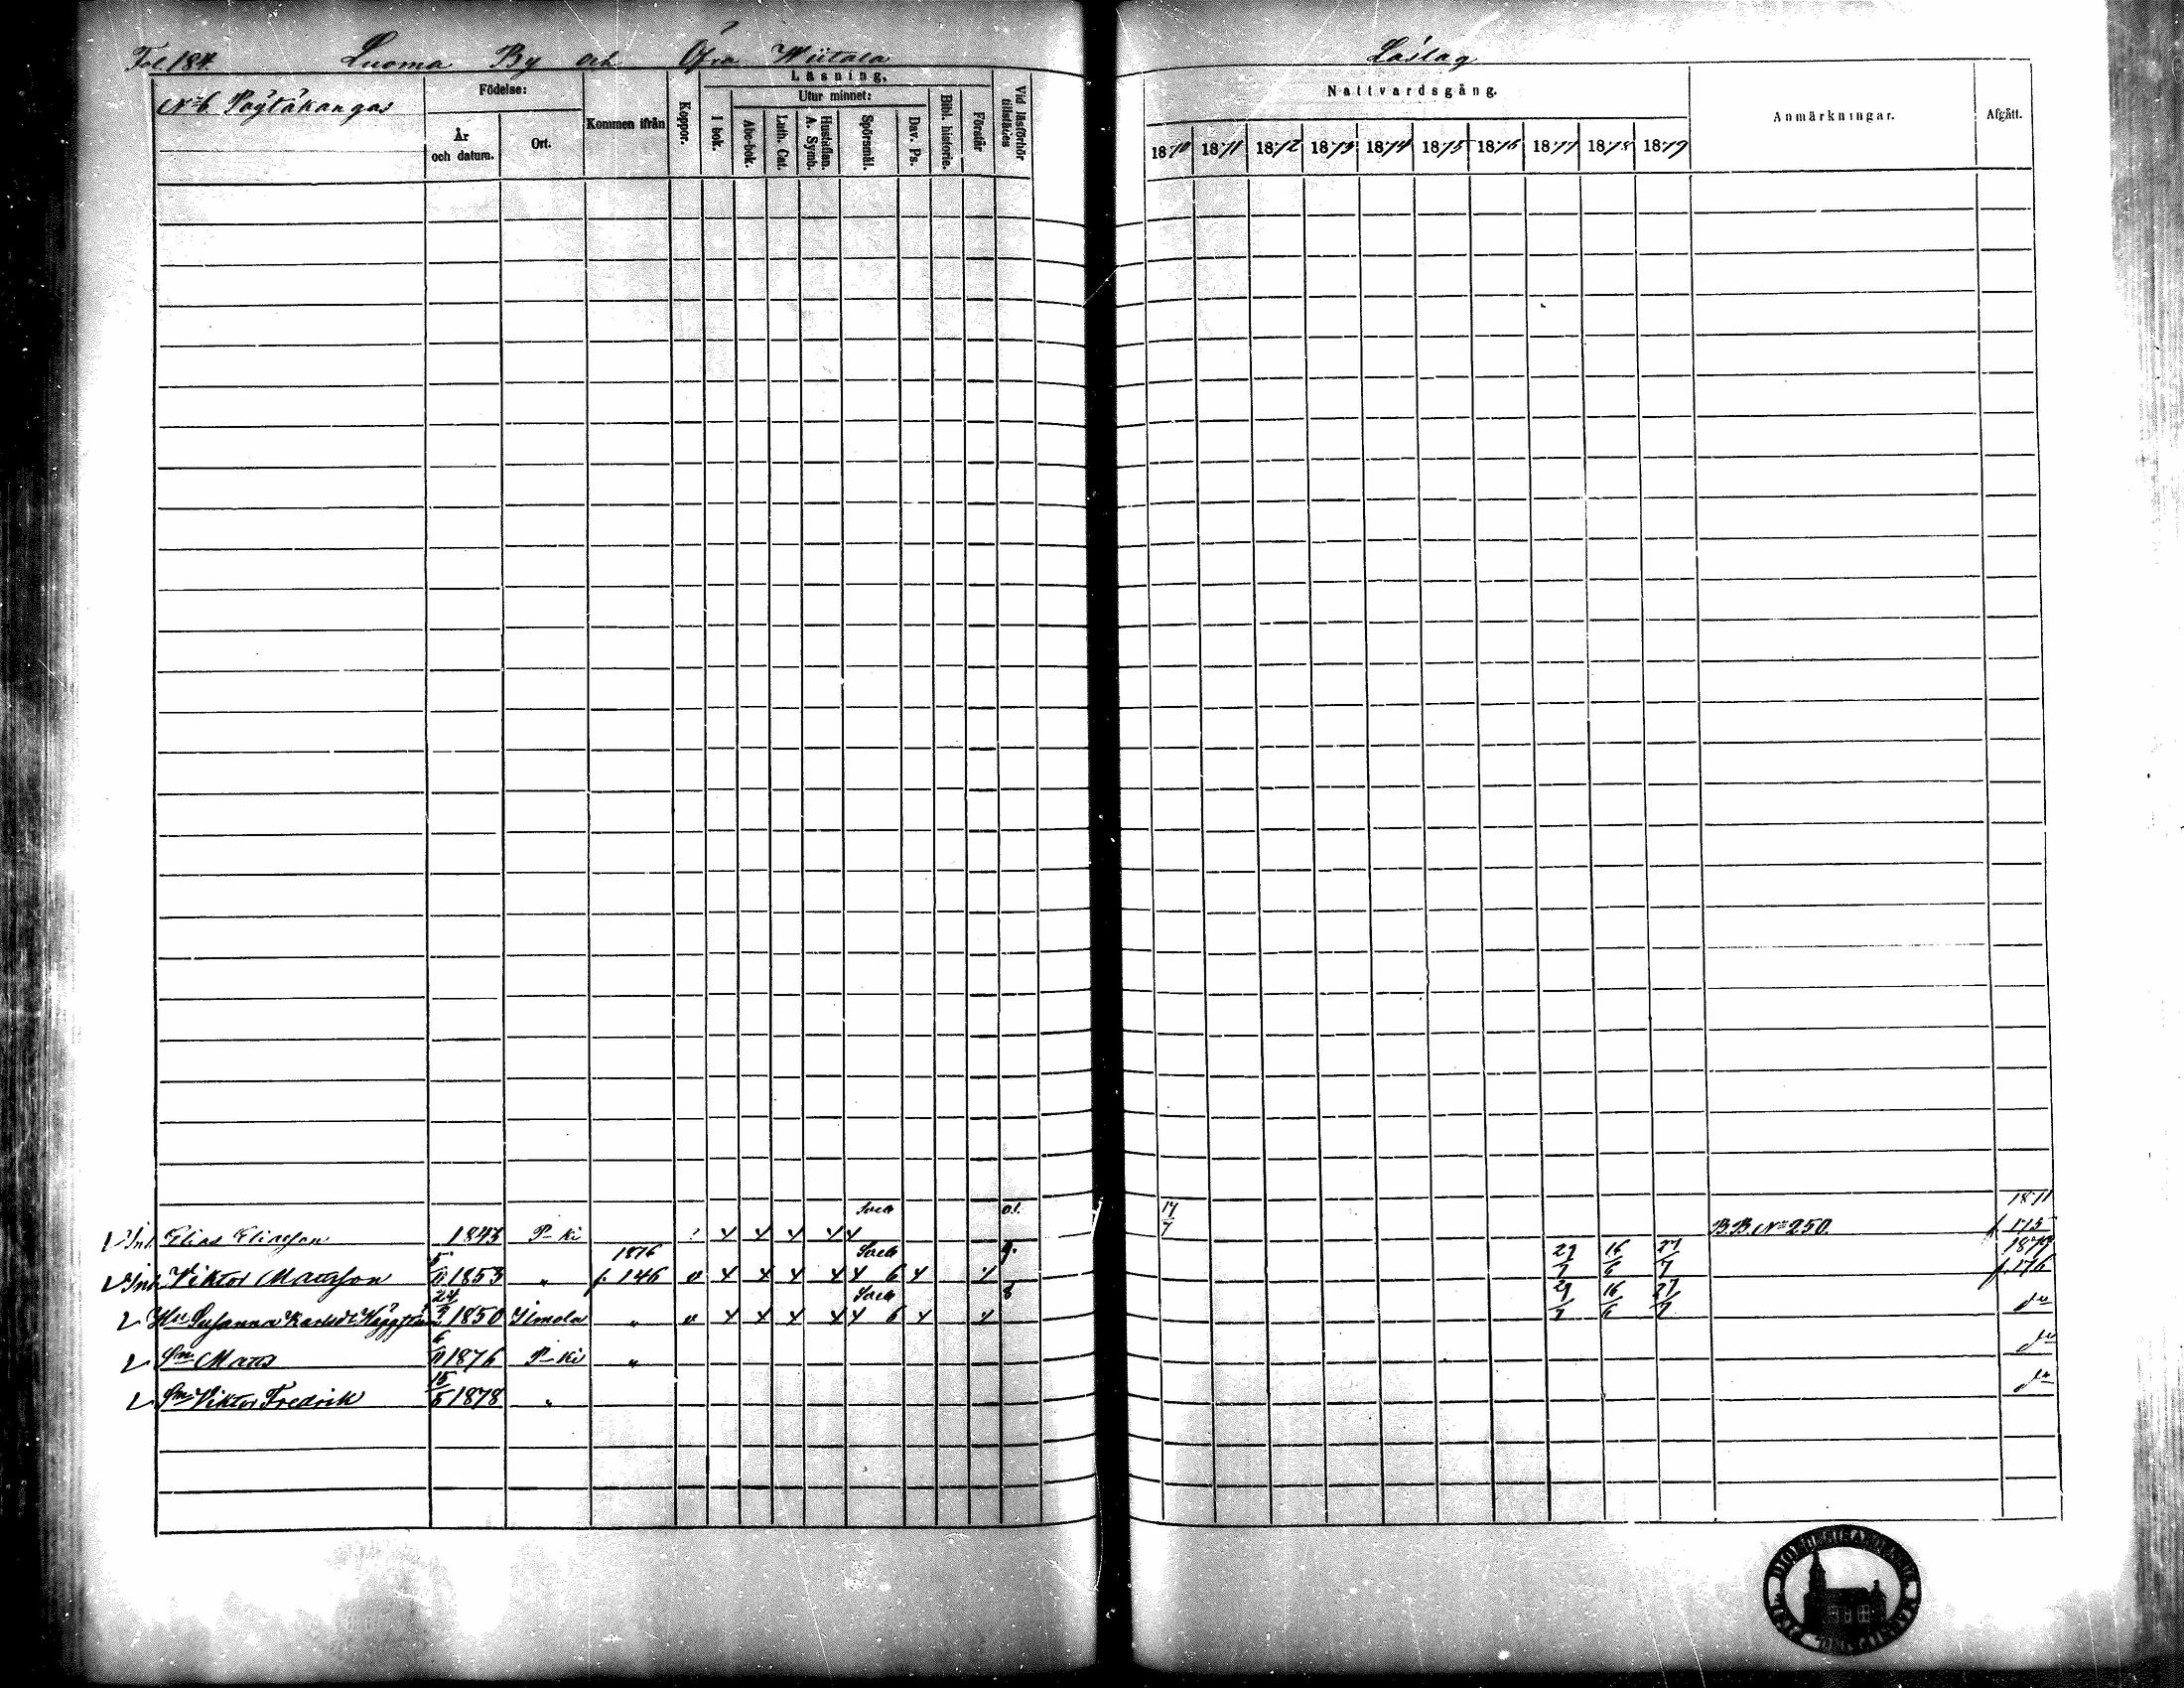 Fol. 184. Luoma By och Öfra Wiitala Läslag
No 6. Pöytäkangas
Födelse:
År och datum.
Ort.
Kommen ifrån
Koppor.
Läsning,
I bok.
Utur minnet:
Abc-bok.
Luth. Cat.
Hustaflan. A. Symb.
Spörsmål.
Dav. Ps.
Bibl. historie.
Förstår
Vid läsförhör tillstädes
Nattvardsgång.
1870 1871 1872 1873 1874 1875 1876 1877 1878 1879
Anmärkningar.
Afgått.
Inh. Elias Eliasson 1843 P-ki 4 4 4 4 4 17/7 B.B. No 250. f. 175
Inh. Viktor Mattsson 5/11 1853 " 1876 f. 146 v 4 4 4 4 4 6 4 4 29/7 16/6 27/7 1879 f. 176
Hu Susanna Karlsdr 24/3 1850 Ilmola " v 4 4 4 4 4 6 4 4 8 29/7 16/6 27/7 do
Sn Matts 6/11 1876 P-ki " do
Sn Viktor Fredrik 15/5 1878 " do